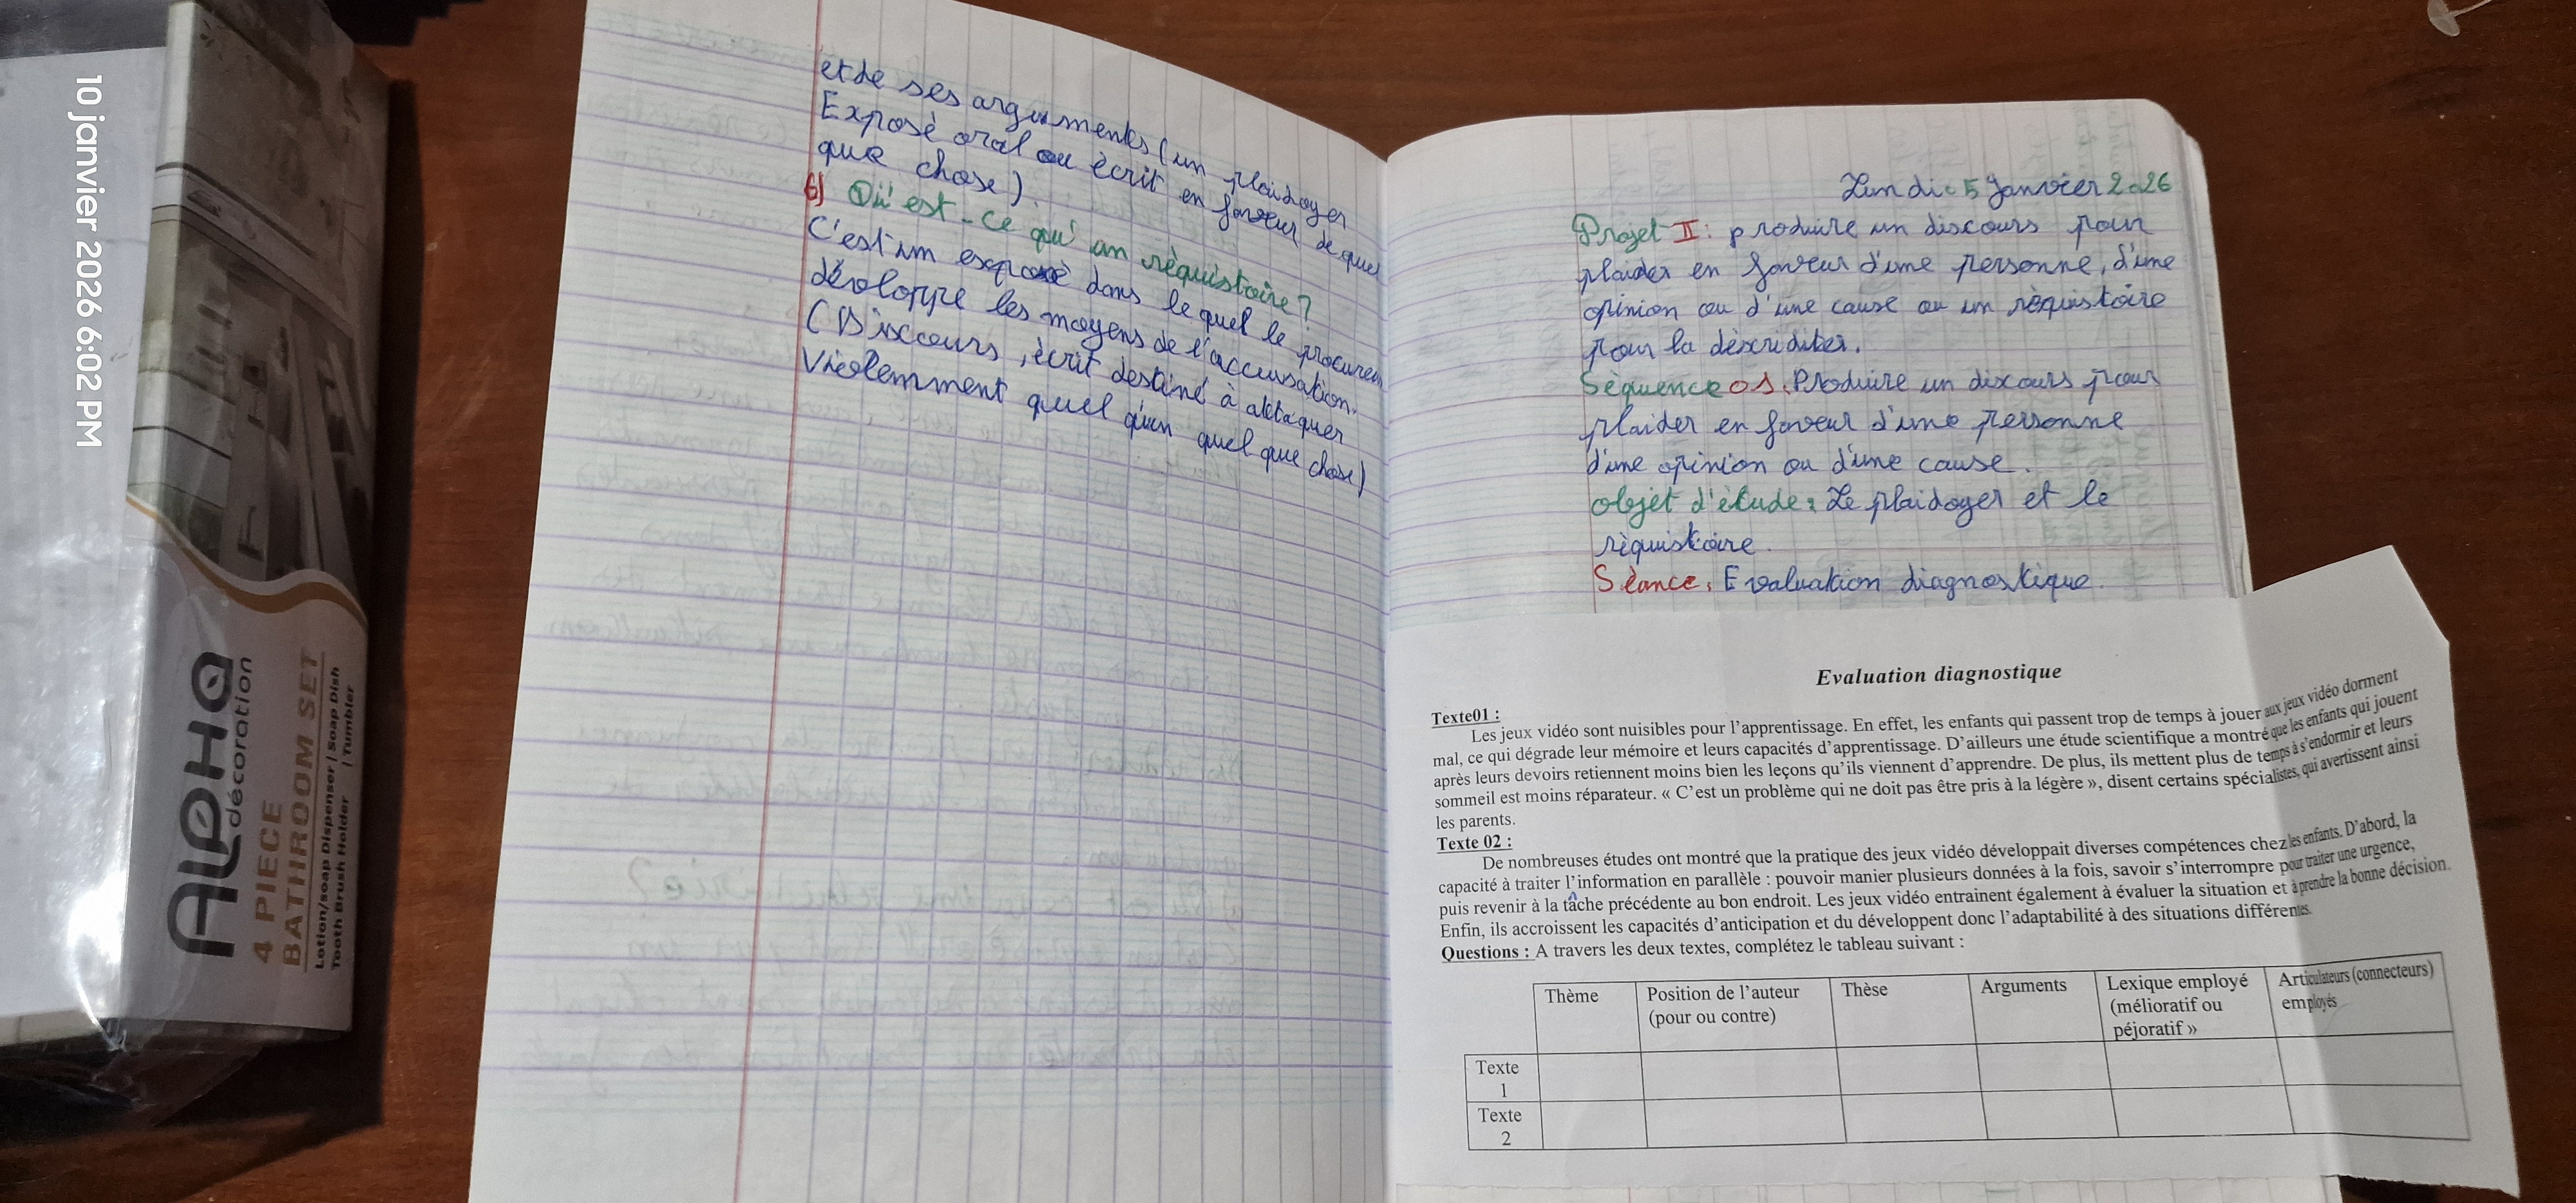 10 janvier 2026 6:02 PM
ALPHA
décoration
4 PIECE
BATHROOM SET
Lotion/soap Dispenser | Soap Dish
Tooth Brush Holder | Tumbler
et de ses arguments (un plaidoyer
Exposè oral ou ècrit en faveur de quel
que chose).
6) Qu'est-ce qu'un rèquistoire?
C'est un exposè dans le quel le procureu
dévoloppe les moyens de l'accusation.
(Discours, ècrit destiné à attaquer
Violemment quel qu'un quel que chose)
Lundi 5 Janvier 2026
Projet II: produire un discours pour
plaider en faveur d'une personne, d'une
opinion ou d'une cause ou un rèquistoire
pour la dècriditer.
Sèquence 01: Produire un discours pour
plaider en faveur d'une personne
d'une opinion ou d'une cause.
objet d'ètude: Le plaidoyer et le
rèquistoire.
Sèance: Evaluation diagnostique.
Evaluation diagnostique
Texte01 :
Les jeux vidéo sont nuisibles pour l'apprentissage. En effet, les enfants qui passent trop de temps à jouer aux jeux vidéo dorment
mal, ce qui dégrade leur mémoire et leurs capacités d'apprentissage. D'ailleurs une étude scientifique a montré que les enfants qui jouent
après leurs devoirs retiennent moins bien les leçons qu'ils viennent d'apprendre. De plus, ils mettent plus de temps à s'endormir et leurs
sommeil est moins réparateur. « C'est un problème qui ne doit pas être pris à la légère », disent certains spécialistes, qui avertissent ainsi
les parents.
Texte 02 :
De nombreuses études ont montré que la pratique des jeux vidéo développait diverses compétences chez les enfants. D'abord, la
capacité à traiter l'information en parallèle : pouvoir manier plusieurs données à la fois, savoir s'interrompre pour traiter une urgence,
puis revenir à la tâche précédente au bon endroit. Les jeux vidéo entrainent également à évaluer la situation et à prendre la bonne décision.
Enfin, ils accroissent les capacités d'anticipation et du développent donc l'adaptabilité à des situations différentes.
Questions : A travers les deux textes, complétez le tableau suivant :
Thème Position de l'auteur Thèse Arguments Lexique employé Articulateurs (connecteurs)
(pour ou contre) (mélioratif ou employés
péjoratif »
Texte
1
Texte
2